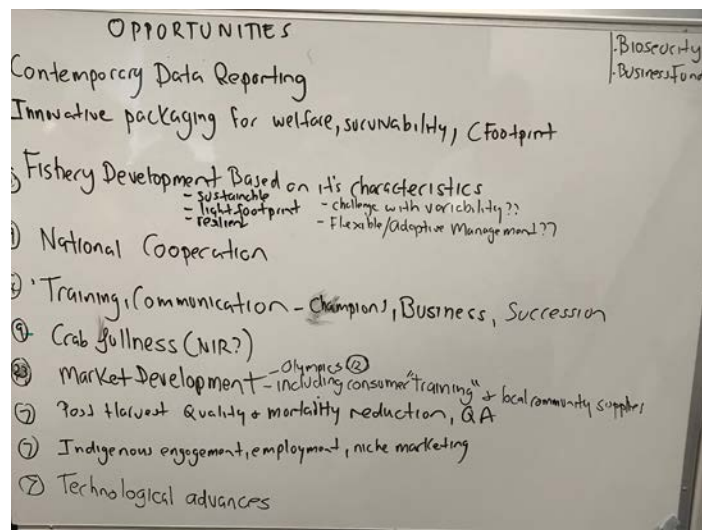 OPPORTUNITIES
.Biosecurity
.Business Fund
Contemporary Data Reporting
Innovative packaging for welfare, survivability, CFootprint
Fishery Development Based on it's characteristics
- sustainable
- light footprint
- resilient
- challenge with variability??
- Flexible/Adaptive Management??
National Cooperation
Training, Communication - Champions, Business, Succession
9 Crab fullness (NIR?)
23 Market Development - Olympics 12
- including consumer "training" & local community supplies
7 Post Harvest Quality & mortality reduction, QA
7 Indigenous engagement, employment, niche marketing
Technological advances